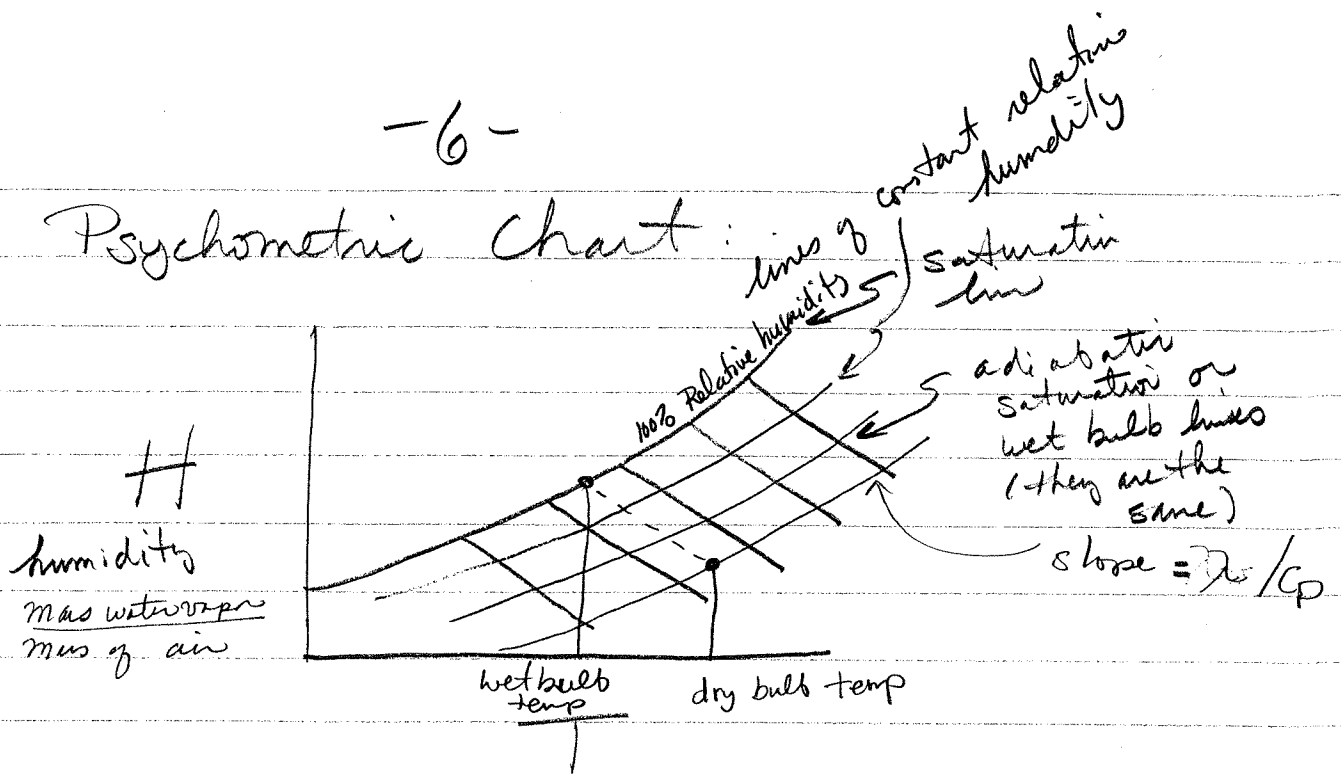 -6-
Psychometric Chart:
lines of constant relative
humdity
saturatin
line
100% Relative humidity
adiabatic
saturation or
wet bulb lines
(they are the
same)
slope = λ/Cp
H
humidity
mass water vapor
mass of air
wet bulb
temp
dry bulb temp
T